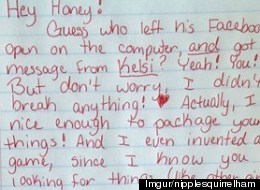 Hey Honey!
Guess who left his Facebook
open on the computer, and got
message from Kelsi? Yeah! You!
But don't worry, I didn't
break anything! ♥ Actually, I
nice enough to package your
things! And I even invented a
game, since I know you
looking for things like other
Imgur/nipplesquirrelham